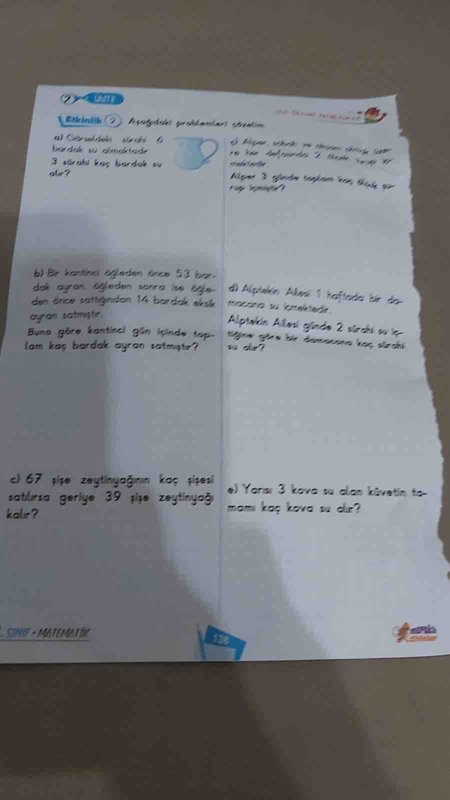 2 ÜNİTE
SIVI ÖLÇME PROBLEMLERİ
Etkinlik 2 Aşağıdaki problemleri çözelim.
a) Görseldeki sürahi 6
bardak su almaktadır.
3 sürahi kaç bardak su
alır?
b) Bir kantinci öğleden önce 53 bar-
dak ayran, öğleden sonra ise öğle-
den önce sattığından 14 bardak eksik
ayran satmıştır.
Buna göre kantinci gün içinde top-
lam kaç bardak ayran satmıştır?
c) 67 şişe zeytinyağının kaç şişesi
satılırsa geriye 39 şişe zeytinyağı
kalır?
ç) Alper, sabah ve akşam olmak üze-
re her defasında 2 ölçek şurup iç-
mektedir.
Alper 3 günde toplam kaç ölçek şu-
rup içmiştir?
d) Alptekin Ailesi 1 haftada bir da-
macana su içmektedir.
Alptekin Ailesi günde 2 sürahi su iç-
tiğine göre bir damacana kaç sürahi
su alır?
e) Yarısı 3 kova su alan küvetin ta-
mamı kaç kova su alır?
. SINIF - MATEMATİK
138